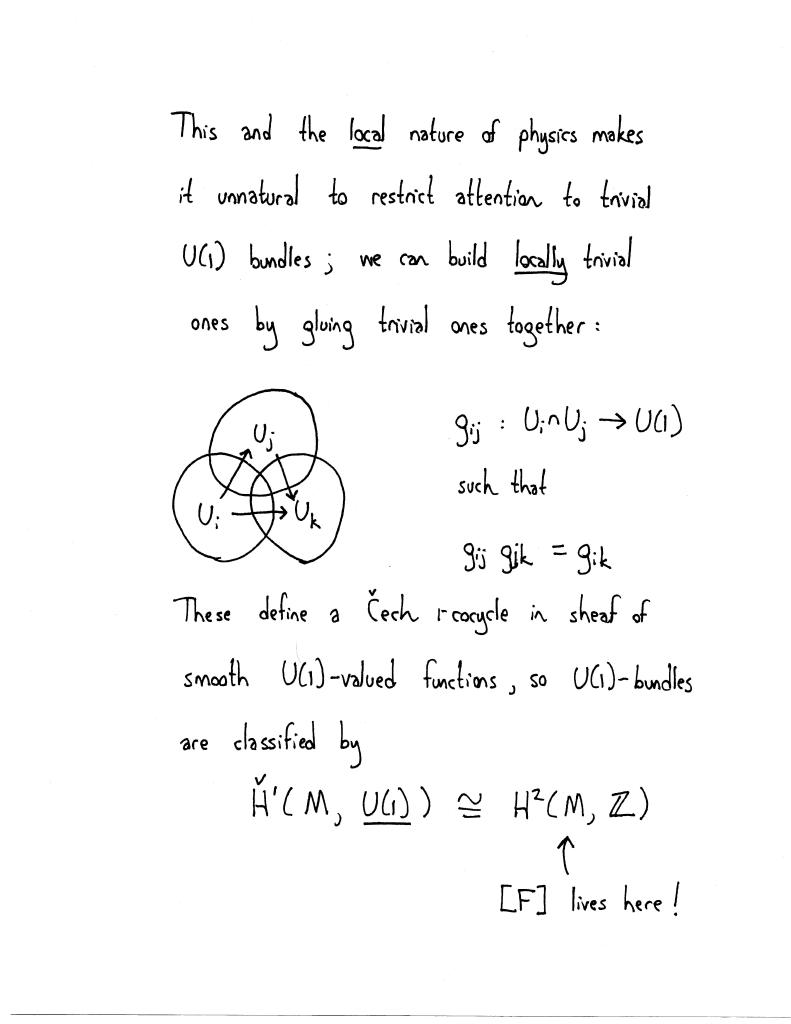 This and the local nature of physics makes
it unnatural to restrict attention to trivial
U(1) bundles ; we can build locally trivial
ones by gluing trivial ones together :
U_j
U_i
U_k
g_ij : U_i ∩ U_j → U(1)
such that
g_ij g_jk = g_ik
These define a Čech 1-cocycle in sheaf of
smooth U(1)-valued functions, so U(1)-bundles
are classified by
Ȟ¹(M, U(1)) ≅ H²(M, ℤ)
↑
[F] lives here!